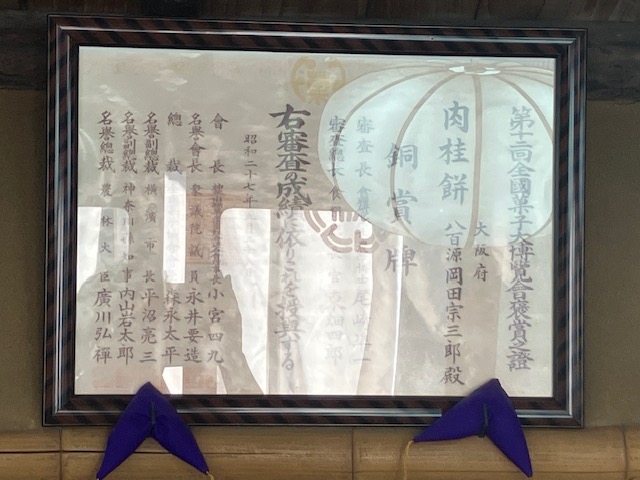 第十二回全國菓子大博覧會褒賞之證
大阪府
肉桂餅 八百源 岡田宗三郎殿
銅賞牌
審査長
審査總長
右審査の成績に依りこれを授與する
昭和二十七年
會長 小宮四九
名譽會長 衆議院議員 永井要造
總裁 森永太平
名譽副總裁 横濱市長 平沼亮三
名譽副總裁 神奈川縣知事 内山岩太郎
名譽總裁 農林大臣 廣川弘禪